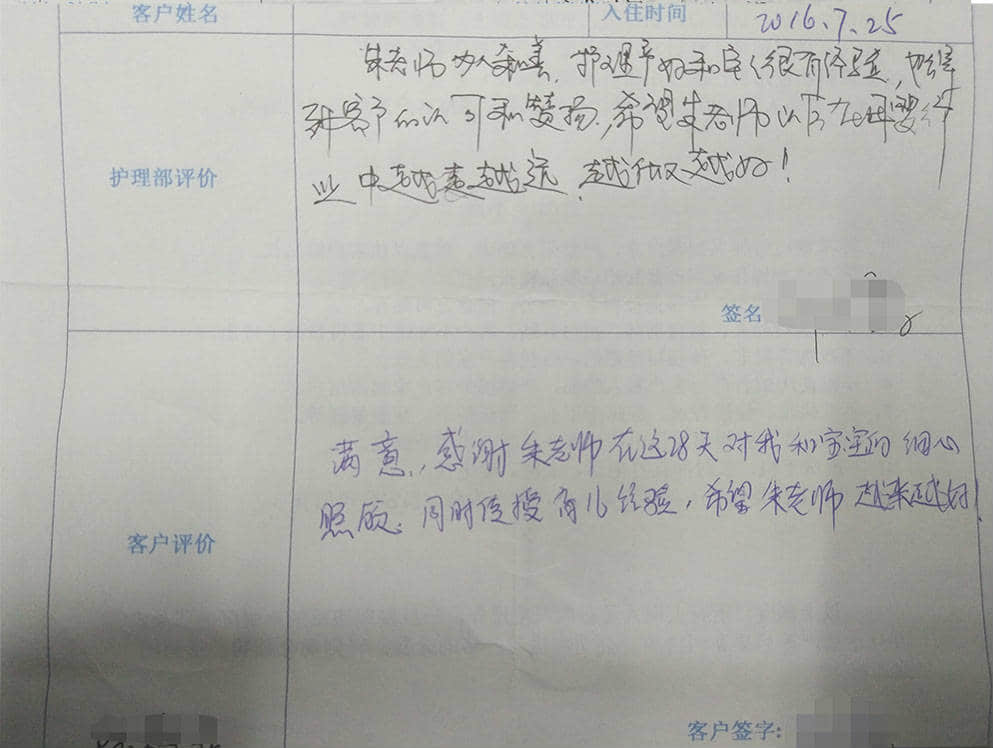 客户姓名 入住时间 2016.7.25
朱老师为人和善,护理产妇和宝宝很有经验,也得
到客户的认可和赞扬,希望朱老师以后在母婴行
业中越走越远,越做越好!
护理部评价
签名
满意,感谢朱老师在这28天对我和宝宝的细心
照顾.同时传授育儿经验,希望朱老师越来越好!
客户评价
客户签字: